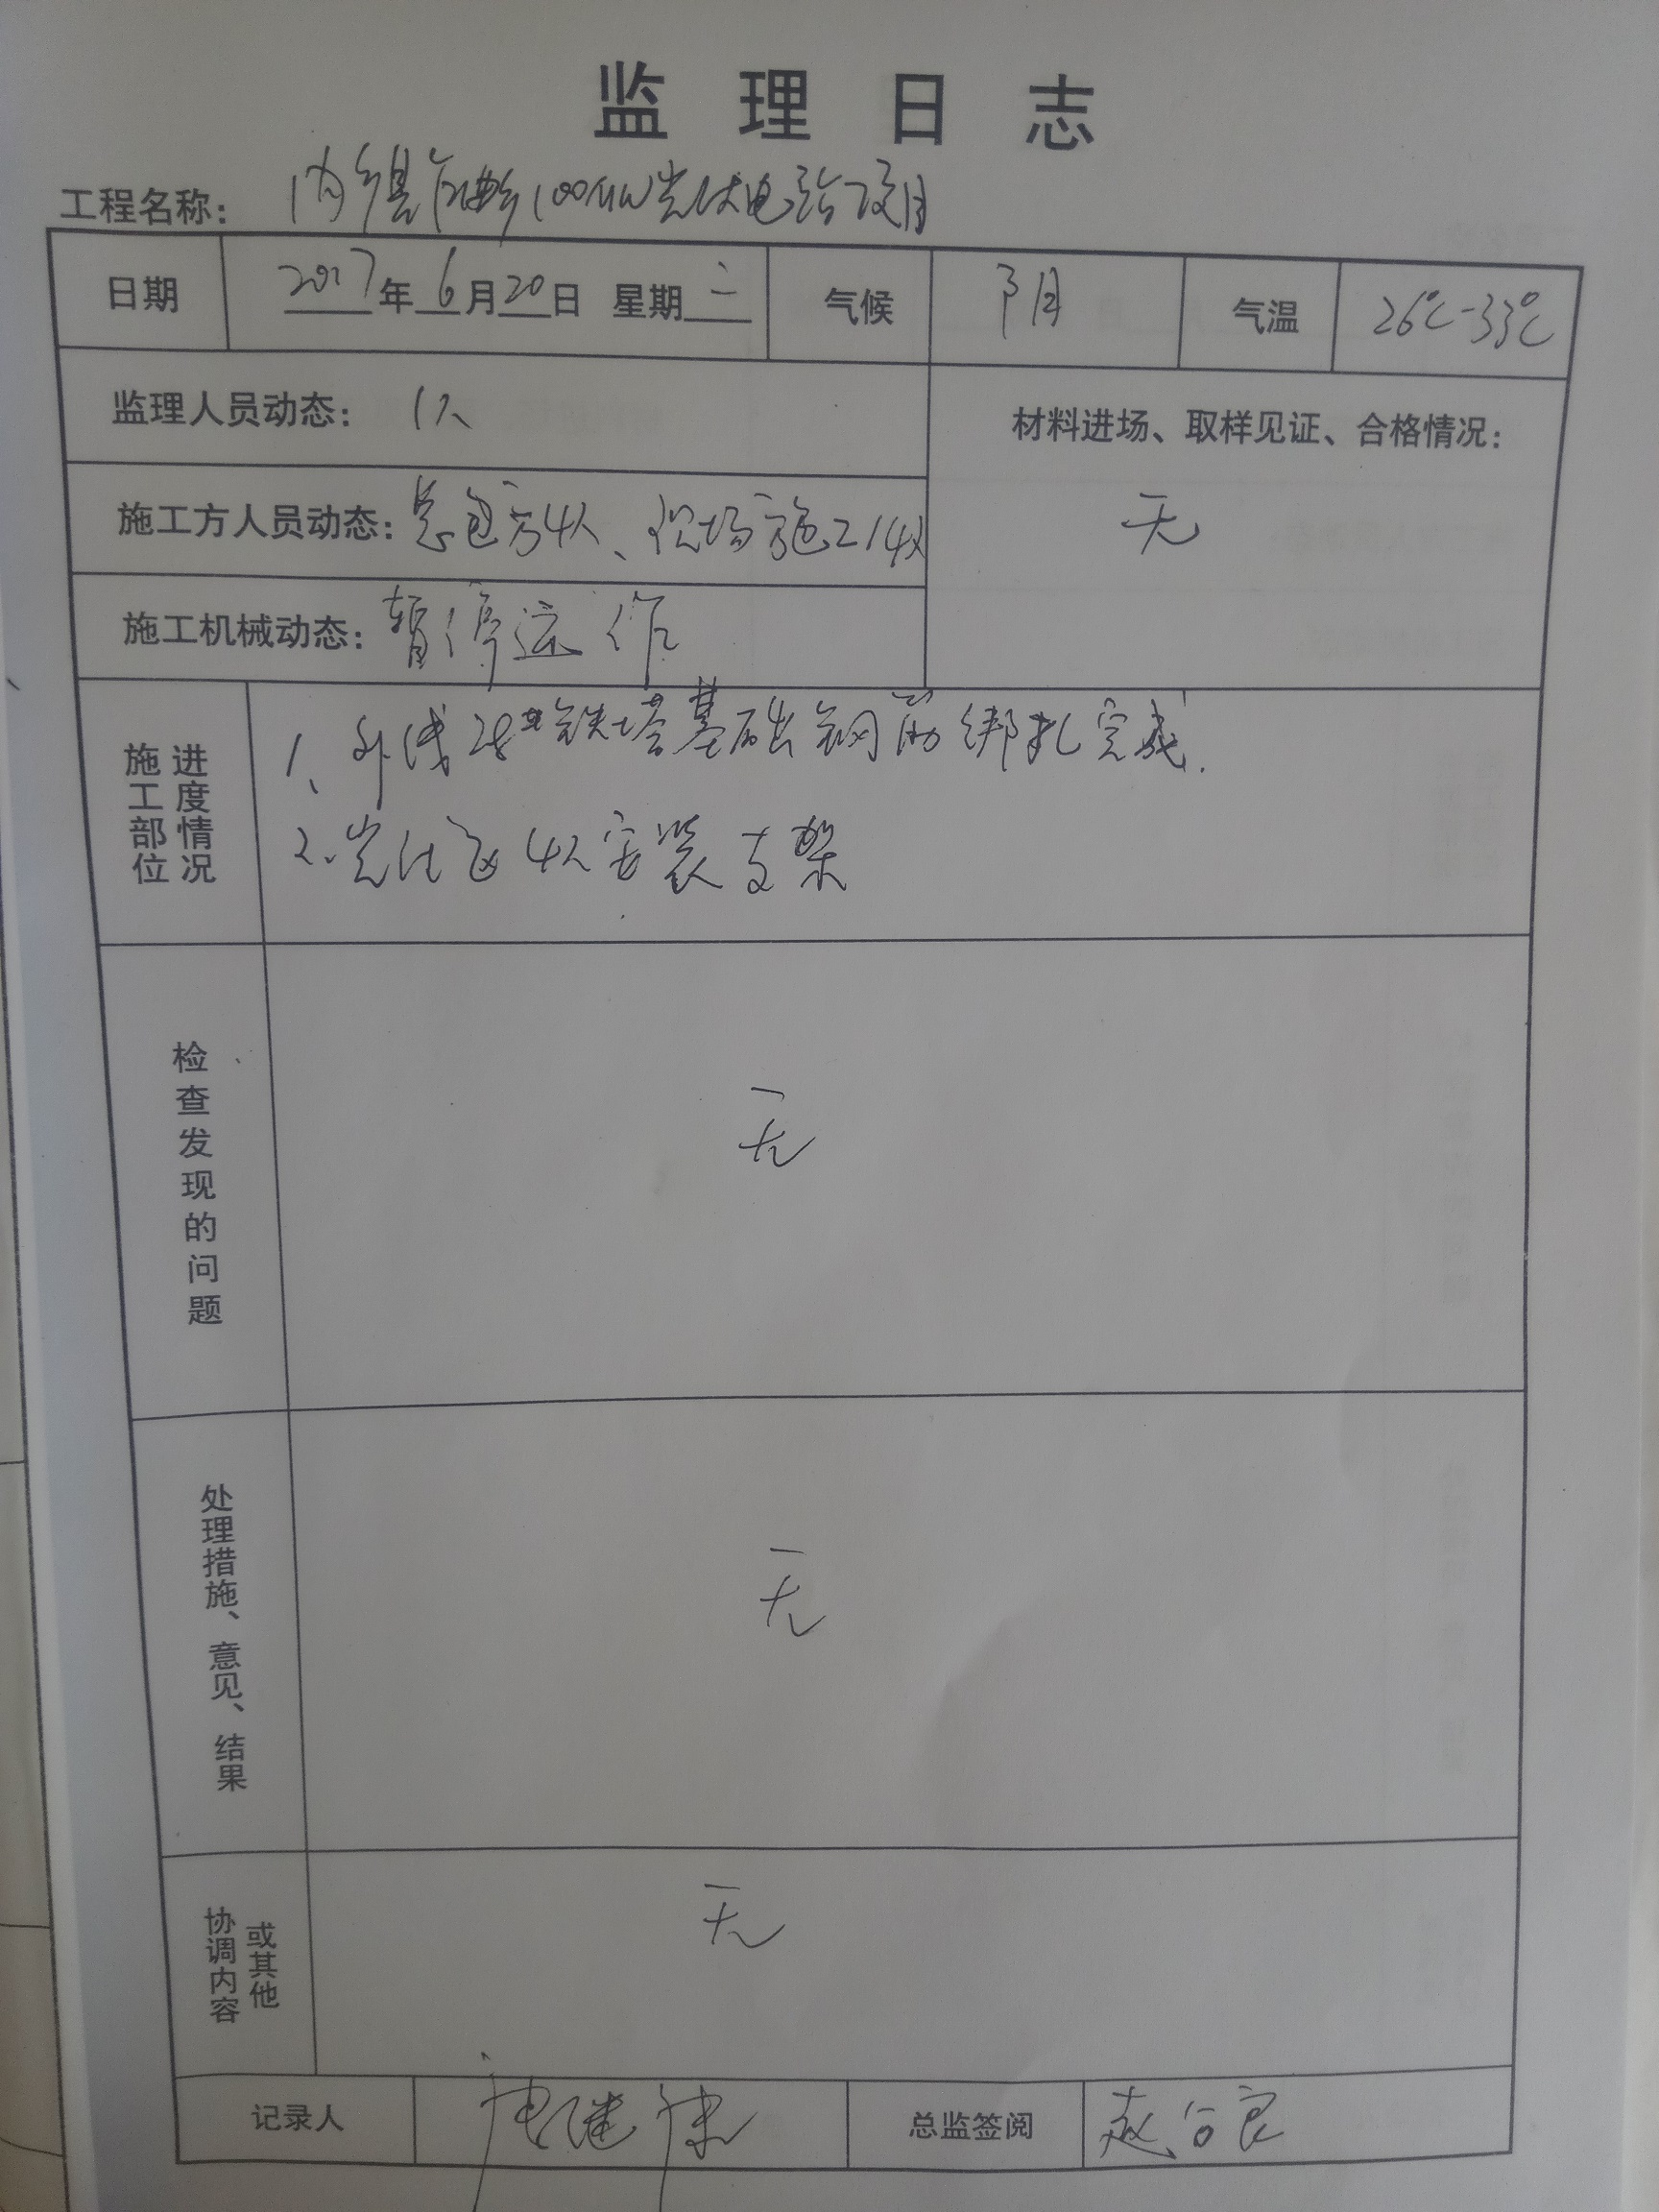 监理日志
工程名称: 内乡县瓦亭乡100MW光伏电站项目
日期 2017年6月20日 星期二 气候 阴 气温 26℃-33℃
监理人员动态: 1人
材料进场、取样见证、合格情况:
无
施工方人员动态: 总包方4人、现场施工14人
施工机械动态: 暂停运作
施工部位 进度情况
1、外线28#铁塔基础钢筋绑扎完成.
2、光伏区4人安装支架
检查发现的问题
无
处理措施、意见、结果
无
协调内容 或其他
无
记录人 总监签阅 赵